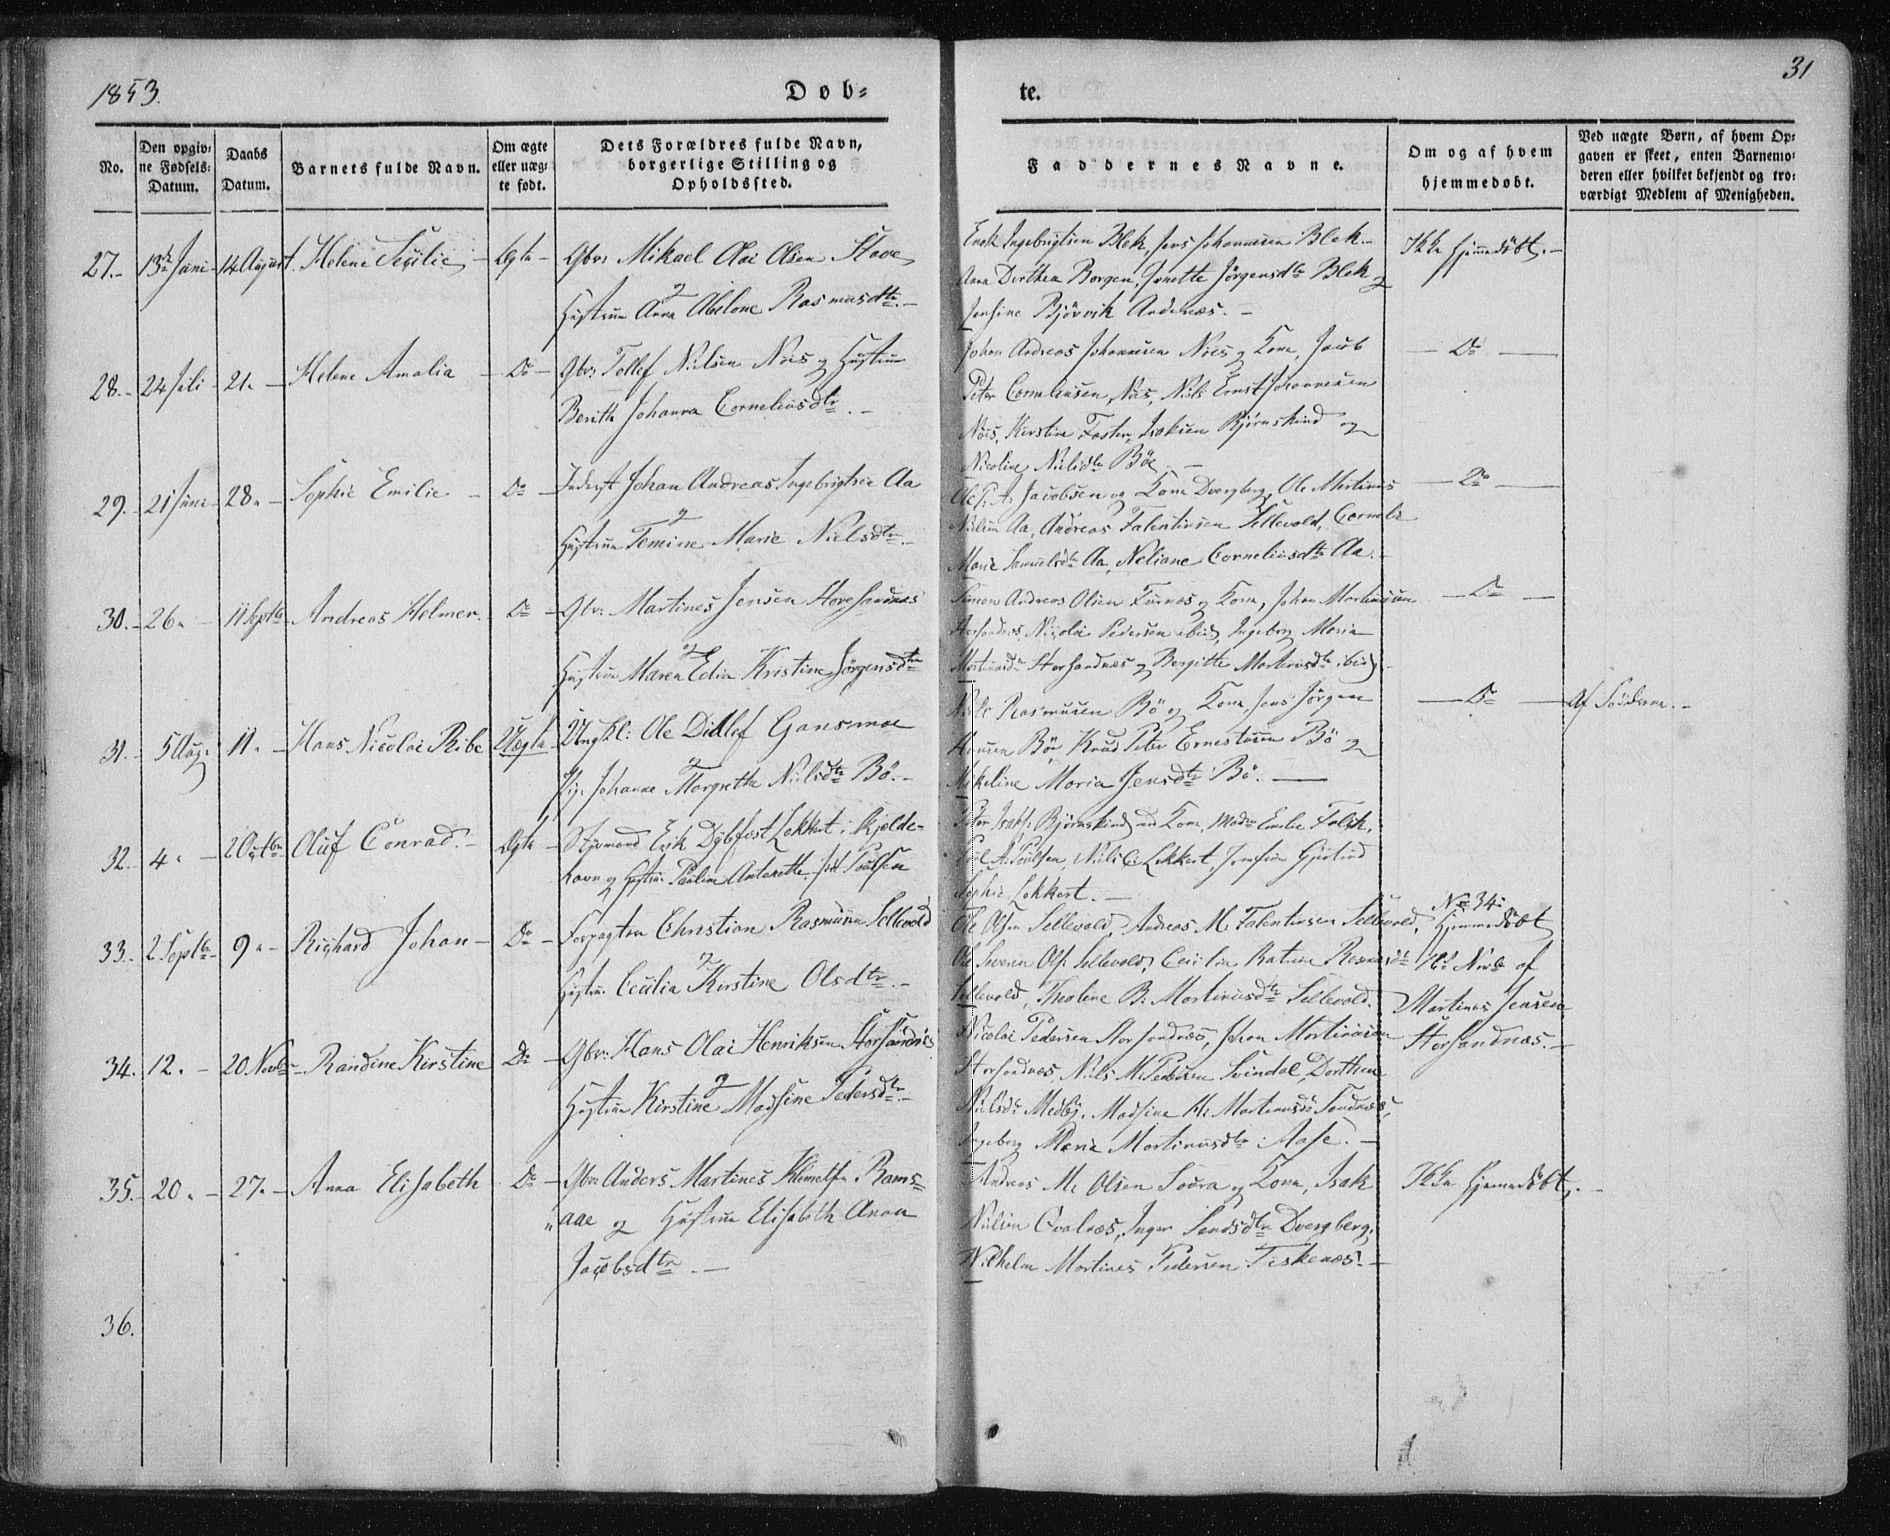 1853.
Døb-
te.
31
No.
Den opgiv-
ne Fødsels-
Datum.
Daabs
Datum.
Barnets fulde Navn.
Om ægte
eller uæg-
te født.
Dets Forældres fulde Navn,
borgerlige Stilling og
Opholdssted.
Faddernes Navne.
Om og af hvem
hjemmedøbt.
Ved uægte Børn, af hvem Op-
gaven er skeet, enten Barnemo-
deren eller hvilket bekjendt og tro-
værdigt Medlem af Menigheden.
27. 13de Juni 14 August. Helene Cecilie Ægte Gbr: Mikael Olai Olsen Stave
og
Hustrue Anna Abelone Rasmusdtr.
Enok Ingebrigtsen Blek, Jens Johannesen Blek
Anna Dorthea Borgen, Jonette Jørgensdtr Blek og
Jensine Bjövik Andenæs.
Ikke hjemmedöbt.
28. 24 Juli 21. Helene Amalia Do Gbr: Tollef Nilsen Nøis og Hustrue
Berith Johanna Corneliusdtr.
Johan Andreas Johannesen Nöis og Kone, Jacob
Peter Corneliusen Nöis, Nils Ernst Johannesen
Nöis, Kirstine Isaksen Bjørnskind og
Nicoline Nilsdtr Böe.
Do
29. 21 Juni 28. Sophie Emilie Do Inderst Johan Andreas Ingebrigtsen Aa
og
Hustrue Marie Nielsdtr.
Ole P. A. Jacobsen og Kone Dverberg, Ole Martinus
Nilsen Aa, Andreas Falentinsen Sellevold, Cornelia
Marie Samuelsdtr Aa, Neliane Corneliusdtr Aa.
Do
30. 26. 11 Septbr Andreas Helmer. Do Gbr: Martines Jensen Storsandnæs
og
Hustrue Maren Edia Kristine Jørgensdtr
Simon Andreas Olsen og Kone, Johan Martinusen
Storsandnæs, Nicolai Pedersen ibid, Ingeborg Maria
Storsandnæs og Bergitte Martinusdtr ibid.
Do
31. 5 Aug. 11. Hans Nicolai Ribe Uægte Ungkl: Ole Didlef Gansmoe
og
Pig. Johanne Margretha Nielsdtr Bö.
Niels Rasmusen Bö og Kone, Jens Jörgen
Hansen Bö, Knud Peter Ernestusen Bö og
Mikeline Maria Jensdtr Bö.
Do
Af
32. 4. 2 Octbr Oluf Conrad. Ægte Styrmand Erik Lekkert i Kjelde-
havn og Hustru Pauline Antonette, født Paulsen
Peter Isaks. Bjørnskind med Kone, Mad. Emilie Falck,
Poul A. Poulsen, Niels C. Lekkert, Josefine Gjertrud
Sophie Lekkert.
33. 2 Septbr 9. Richard Johan Do Forpagter Christian Rasmusen Sellevold
og
Hustru Cecilia Kirstine Olsdtr.
Ole Olsen Sellevold, Andreas M. Falentinsen Sellevold,
Ole Severin Ols. Sellevold, Cecilia Rasmusdtr
Sellevold, Theoline B. Martinusdtr Sellevold.
No 34.
Hjemmedöbt
Novb. af
Martines Jensen
Storsandnæs.
34. 12. 20 Novbr Randine Kirstine Do Gbr: Hans Olai Henriksen Storsandnæs
og
Hustrue Kirstine Madsine Pedersdtr.
Nicolai Pedersen Storsandnæs, Johan Martinusen
Storsandnæs, Nils M. Pedersen Svindal, Dorthea
Nielsdtr Medby, Madsine M. Martinusdtr Sandnæs,
Ingeborg Marie Martinusdtr Aase.
35. 20. 27. Anna Elisabeth Do Gbr: Anders Martines Klemetsen Rams-
aae og Hustrue Elisabeth Anna
Jacobsdtr.
Andreas M. Olsen Soura og Kone, Isak
Nielsen Qvalnæs, Inger Dverberg,
Wilhelm Martines Pedersen Fiskenæs.
Ikke hjemmedöbt.
36.